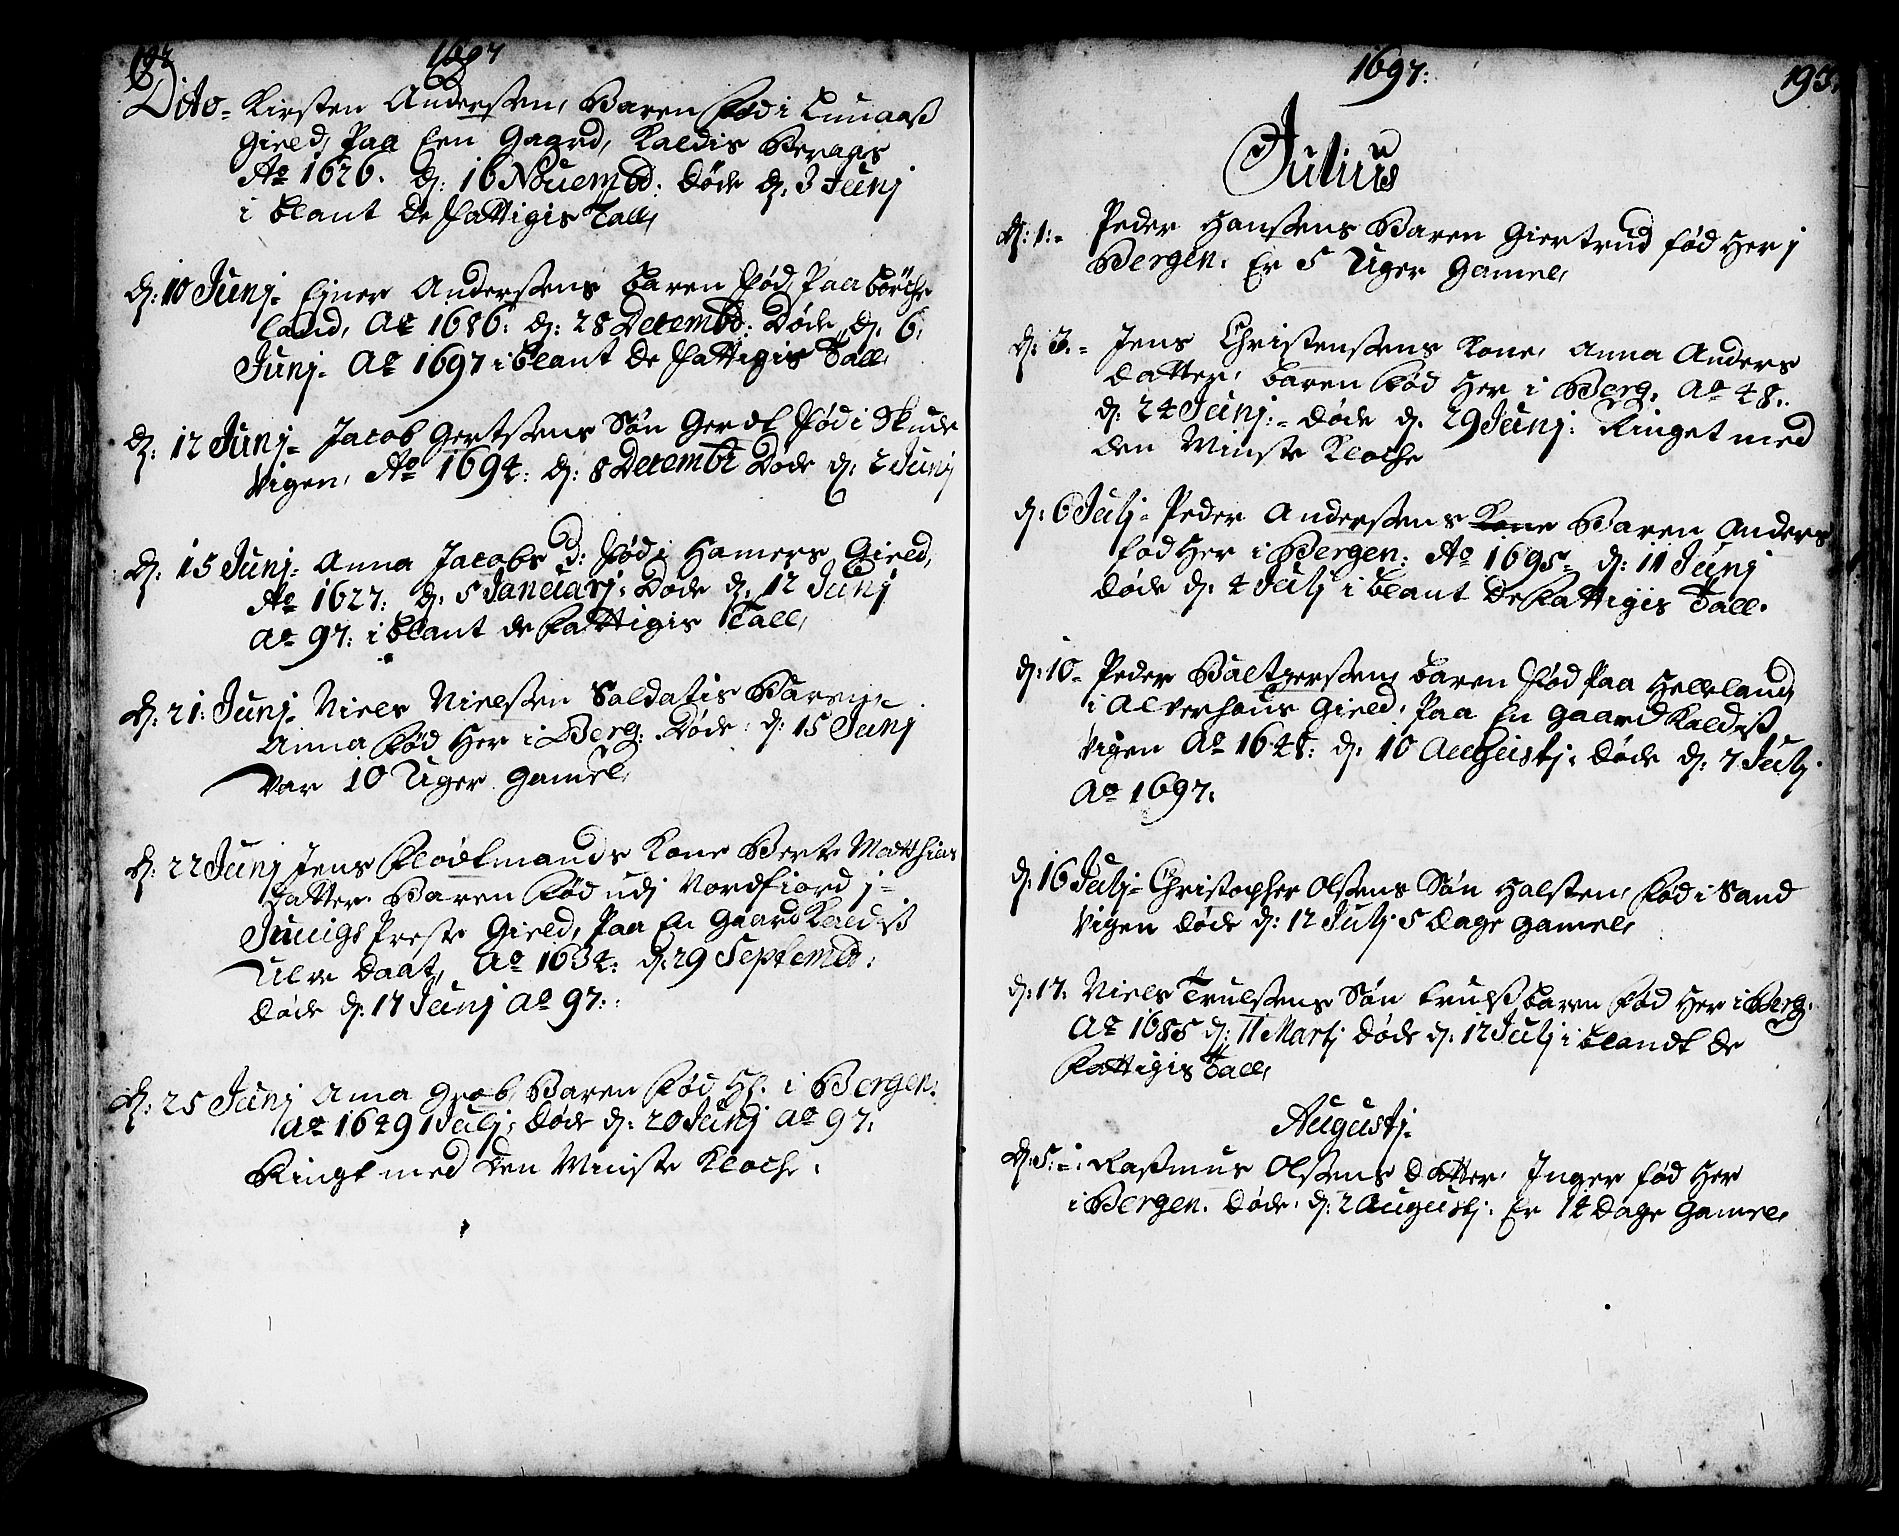 192
1697
Dito= Kirsten Anderssen, Baren Fød i
Gield, Paa Een Gaard, Kaldis
Ao 1626. d: 16 Nouembd: Døde d: 3 Junj
i blant de Fattigis Tall,
d: 10 Junj= Ejner Anderssens baren Fød, Paa Børche
land, Ao 1686: d: 28 Decembd: Døde d: 6.
Junj= Ao 1697 i blant de Fattigis Tall,
d: 12 Junj= Jacob Gertssens Søn Gerdt Fød i Skude
Vigen, Ao 1694: d: 8 Decembr Døde d: 2 Junj
d: 15 Junj= Anna Jacobs d: Fød i Hamers Gield,
Ao 1627: d: 5 Januarj: Døde d: 12 Junj
Ao 97: i blant de Fattigis Tall,
d: 21: Junj= Niels Nielssen Soldatis Baren,
Anna Fød Her i Berg: Døde: d: 15 Junj
Var 10 Uger gamel,
d: 22 Junj Jens Flødtmands Kone Berte Matthias
datter Baren Fød udj Nordfiord j=
Preste Gield, Paa En Gaard Kaldis
Ulve Daat, Ao 1634: d: 29 Septembd:
Døde d: 17 Junj Ao 97:
d: 25 Junj Anna Grob, Baren Fød Hr. i Bergen:
Ao 1649 1 Julj: Døde d: 20 Junj Ao 97:
Ringt med den Minste Kloche:
1697:
193.
Julius
d: 1:= Peder Hanssens Baren Giertrud fød Her j
Bergen. Er 5 Uger Gamel,
d: 3.= Jens Christenssens Kone, Anna Anders
datter, baren Fød Her i Berg. Ao 48.
d: 24 Junj:= døde d. 29 Junj: Ringet med
den Minste Kloche
d: 6 Julj= Peder Anderssens Kone Baren Anders
fød Her i Bergen: Ao 1695= d: 11 Junj
døde d: 4 Julj i blant de Fattigis Tall.
d: 10= Peder Baltzerssen, baren Fød Paa Helleland,
i Alverhaus Gield, Paa En Gaard Kaldis
Vigen Ao 1648: d: 10 Augustj: døde d: 7 Julj.
Ao 1697:
d: 16 Julj= Christopher Olssens Søn Halsten, Fød i Sand
Vigen døde d: 12 Julj 5 dage gamel,
d: 17: Niels Trulssens Søn truls baren Fød Her i Berg:
Ao 1685 d: 11 Martj døde d: 12 Julj i blandt de
Fattigis Tall,
Augustj.
d: 5:= Rasmus Olssens datter, Inger fød Her
i Bergen. døde: d: 2 Augustj: Er 14 dage Gamel,